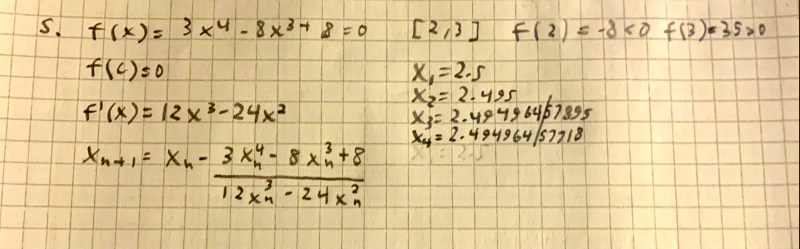 5. f(x) = 3x⁴ - 8x³ + 8 = 0 [2,3] f(2) = -8 < 0 f(3) = 35 > 0
f(c) = 0
f'(x) = 12x³ - 24x²
xₙ₊₁ = xₙ - (3xₙ⁴ - 8xₙ³ + 8) / (12xₙ³ - 24xₙ²)
x₁ = 2.5
x₂ = 2.495
x₃ = 2.494964/57895
x₄ = 2.494964/57718